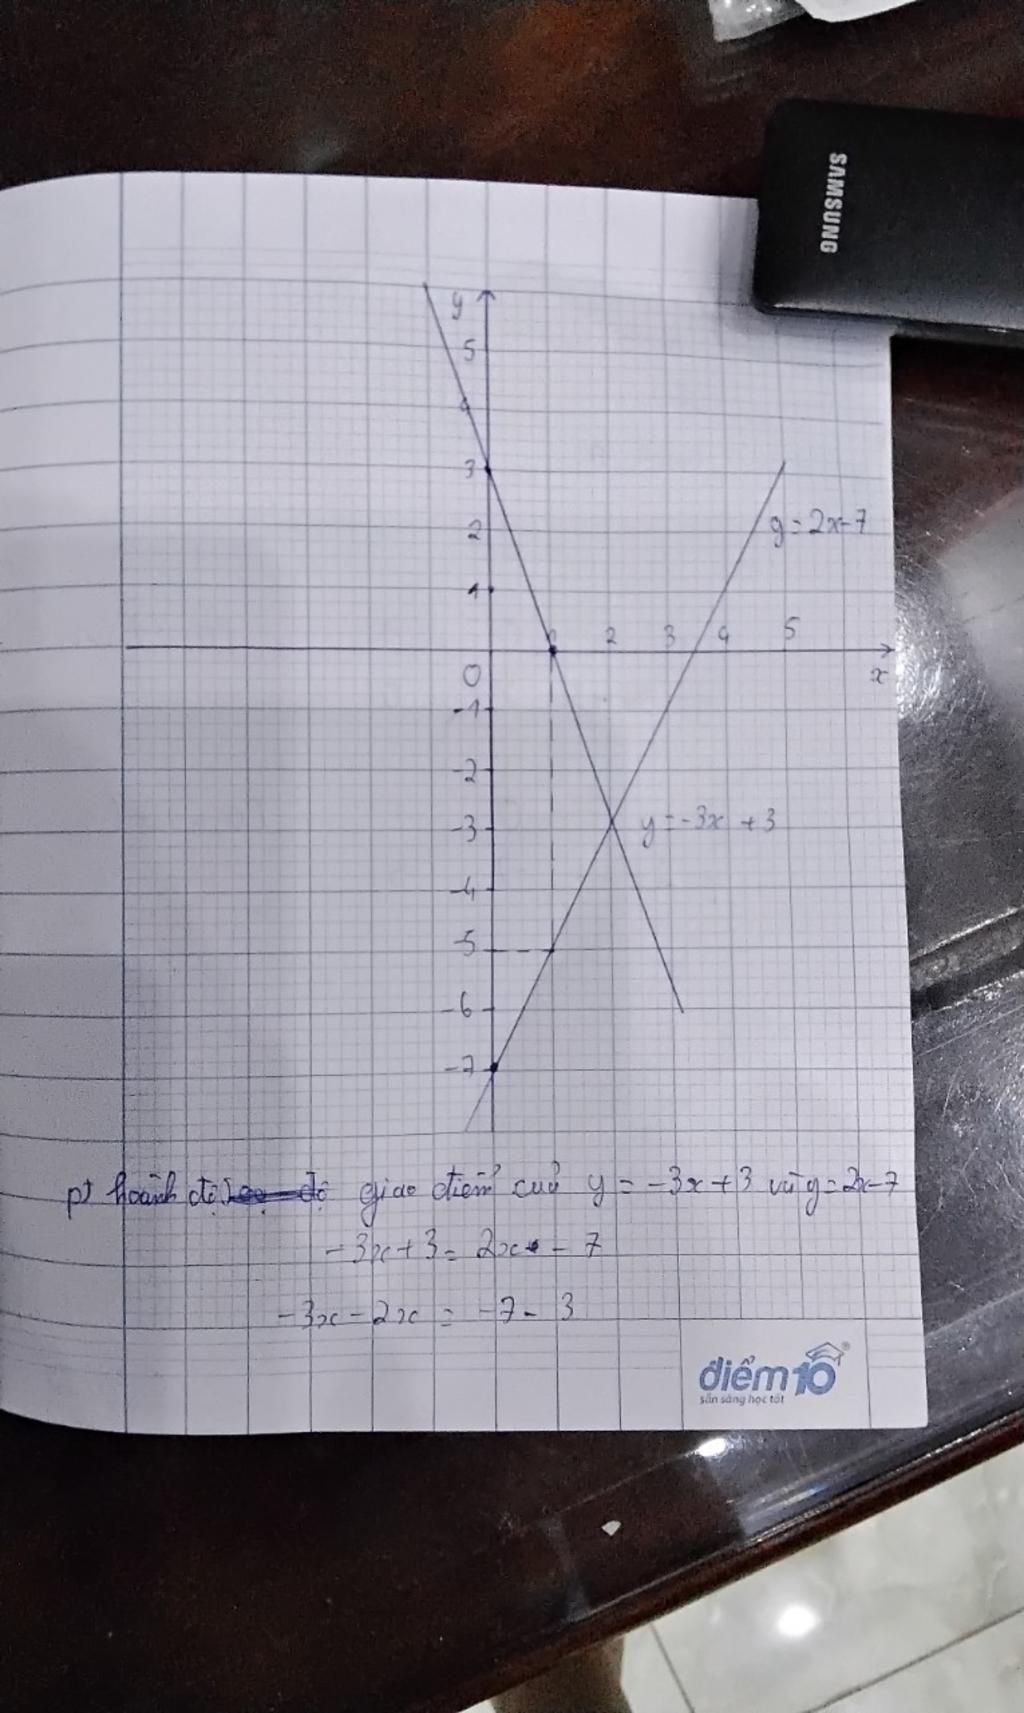 SAMSUNG
y
5
4
3
y = 2x-7
2
1
1 2 3 4 5
0
x
-1
-2
y = -3x + 3
-3
-4
-5
-6
-7
pt hoành độ giao điểm của y = -3x + 3 và y = 2x-7
-3x + 3 = 2x - 7
-3x - 2x = -7 - 3
điểm10®
sẵn sàng học tốt